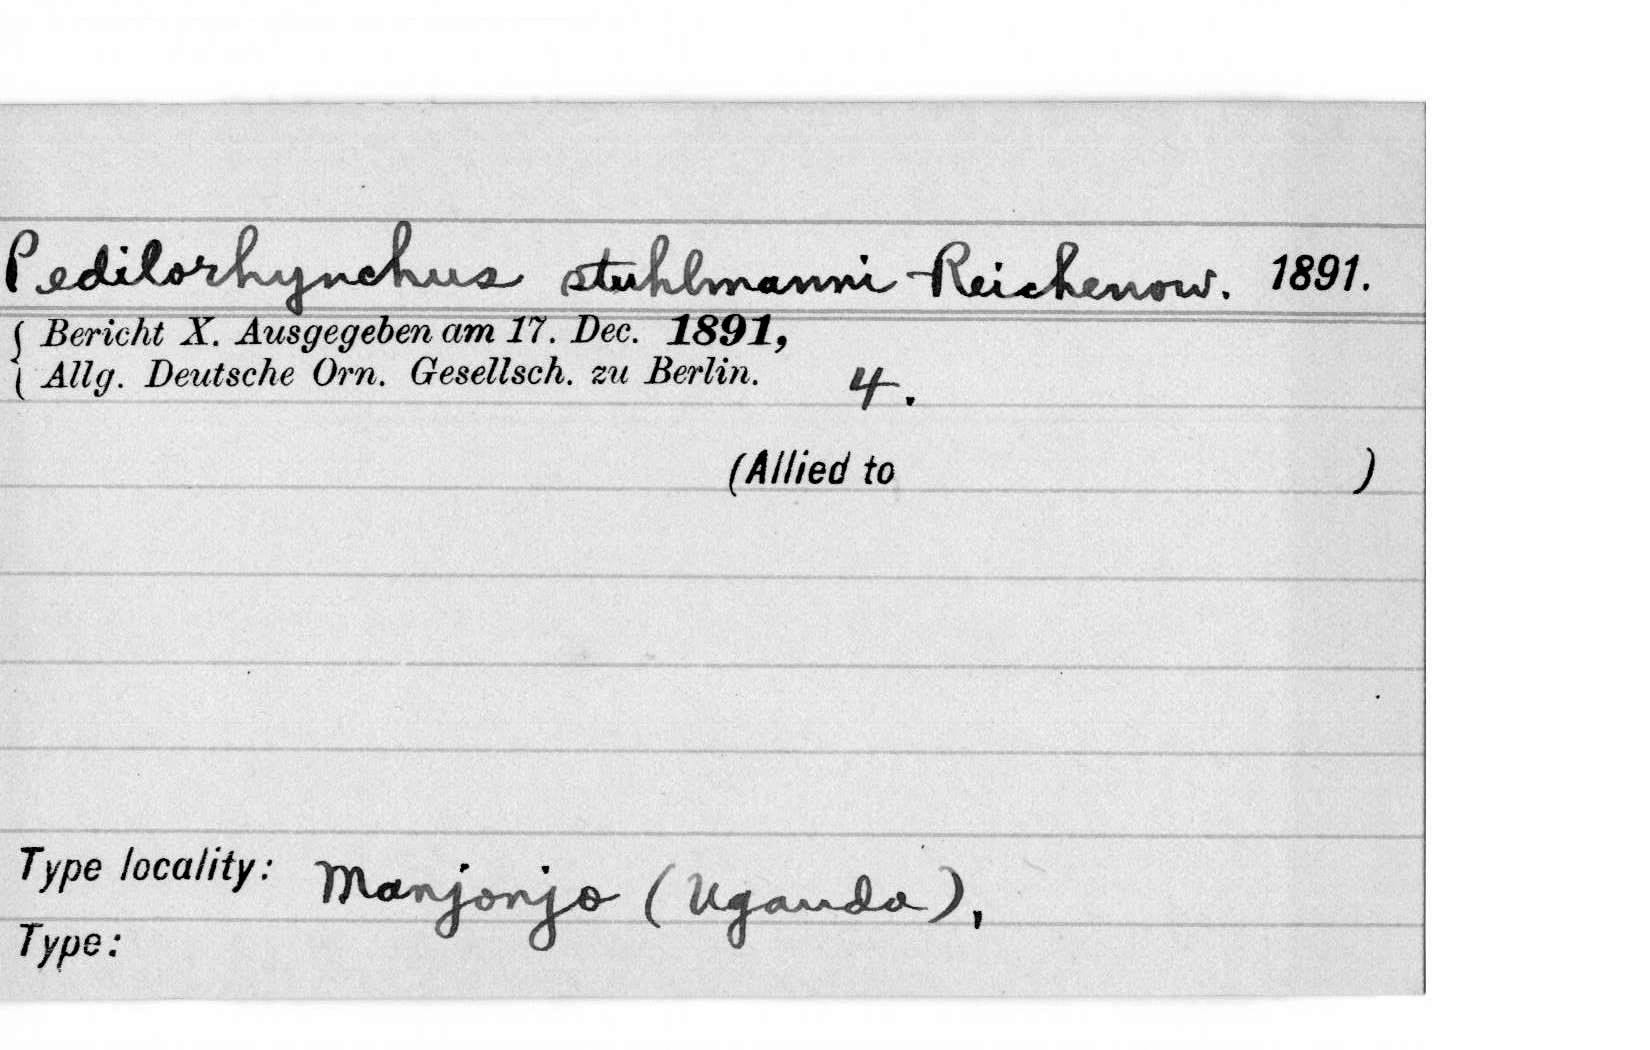 Pedilorhynchus stuhlmanni Reichenow. 1891.
{ Bericht X. Ausgegeben am 17. Dec. 1891,
Allg. Deutsche Orn. Gesellsch. zu Berlin. 4.
(Allied to )
Type locality: Manjonjo (Uganda),
Type: